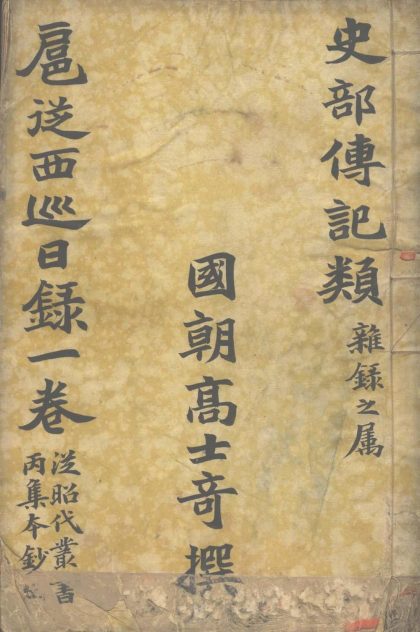 史部傳記類
雜録之属
國朝髙士竒撰
扈從西巡日録一卷
從昭代叢書
丙集本鈔